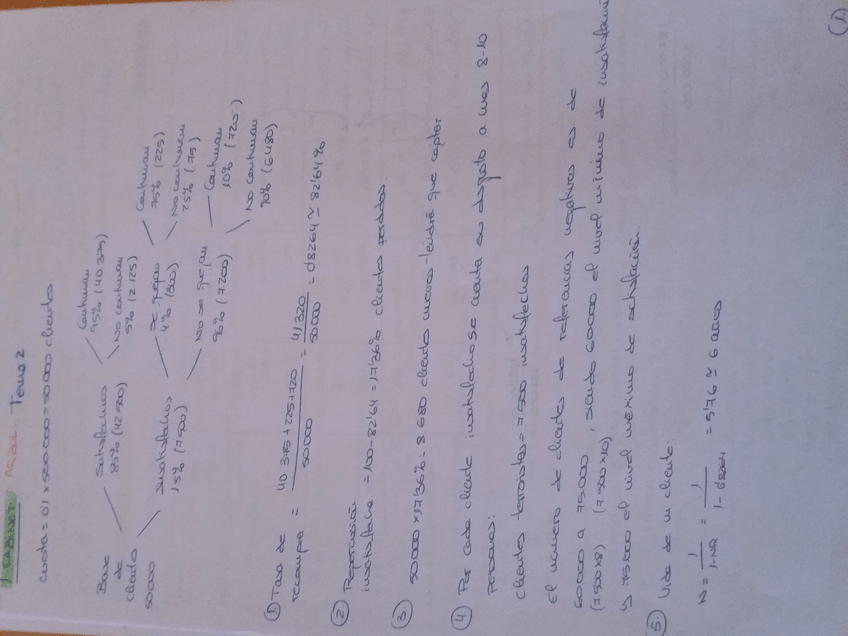 Tema 2
cuota = 0'1 x 500 000 = 50 000 clientes
Base de clientes 50000
Satisfechos 85% (42 500)
Insatisfechos 15% (7.500)
Continuan 95% (40 375)
No continuan 5% (2 125)
Se quejan 4% (300)
No se quejan 96% (7.200)
Continuan 75% (225)
No continuan 25% (75)
Continuan 10% (720)
No continuan (6480)
① Tasa de recompra = 40 375 + 225 + 720 / 50 000 = 41 320 / 50 000 = 0'8264 ≃ 82'64%
② Repercusión
insatisfacc = 100 - 82'64 = 17'36% clientes perdidos.
③ 50 000 x 17'36% = 8 680 clientes nuevos tendrá que captar
④ Por cada cliente insatisfecho se cuenta su disgusto a unas 8-10
personas:
clientes terroristas = 7 500 insatisfechos
El número de clientes de referencias negativas es de
60 000 a 75 000, siendo 60 000 el nivel mínimo de
(7 500 x 8) (7 500 x 10)
y 75 000 el nivel máximo de satisfacción.
5. Vida de un cliente:
N = 1 / 1- = 1 / 1-0'8264 = 5'76 ≃ 6 años
(1)